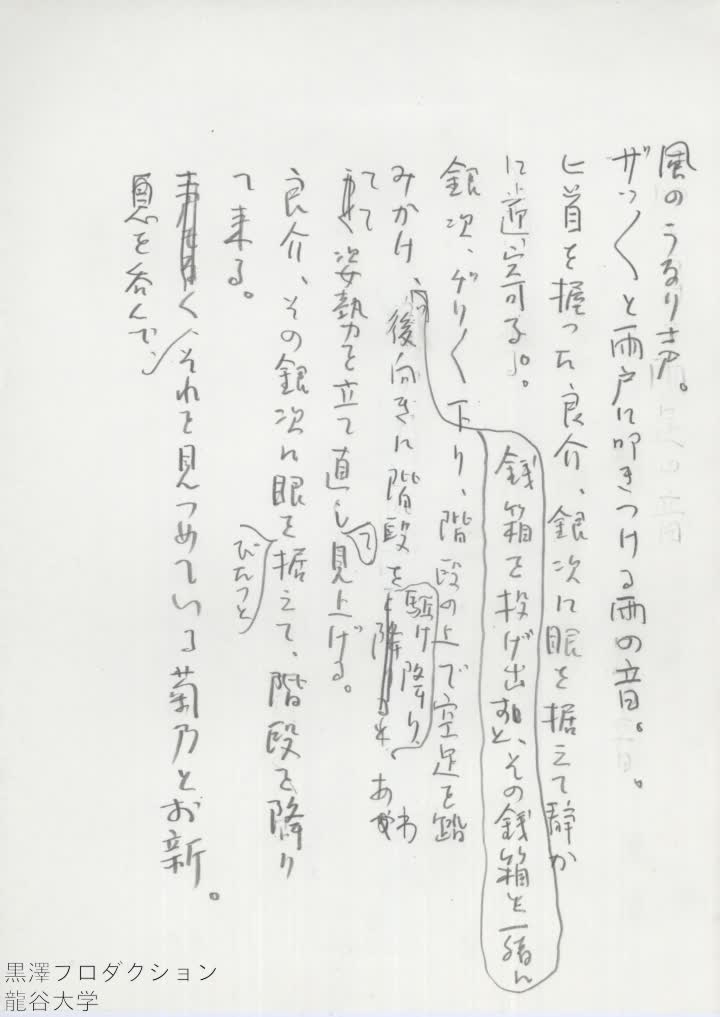 風のうなり声。
ザっ〱と雨戸に叩きつける雨の音。
匕首を握った良介、銀次に眼を据えて静か
に近寄る。
銭箱を投げ出すと、その銭箱と一緒に
銀次、ずり〱下り、階段の上で空足を踏
みかけ、後向きに階段を駈け降り、あわ
てて姿勢を立て直して見上げる。
良介、その銀次に眼をぴたっと据えて、階段を降り
て来る。
息を呑んで、それを見つめている菊乃とお新。
黒澤プロダクション
龍谷大学